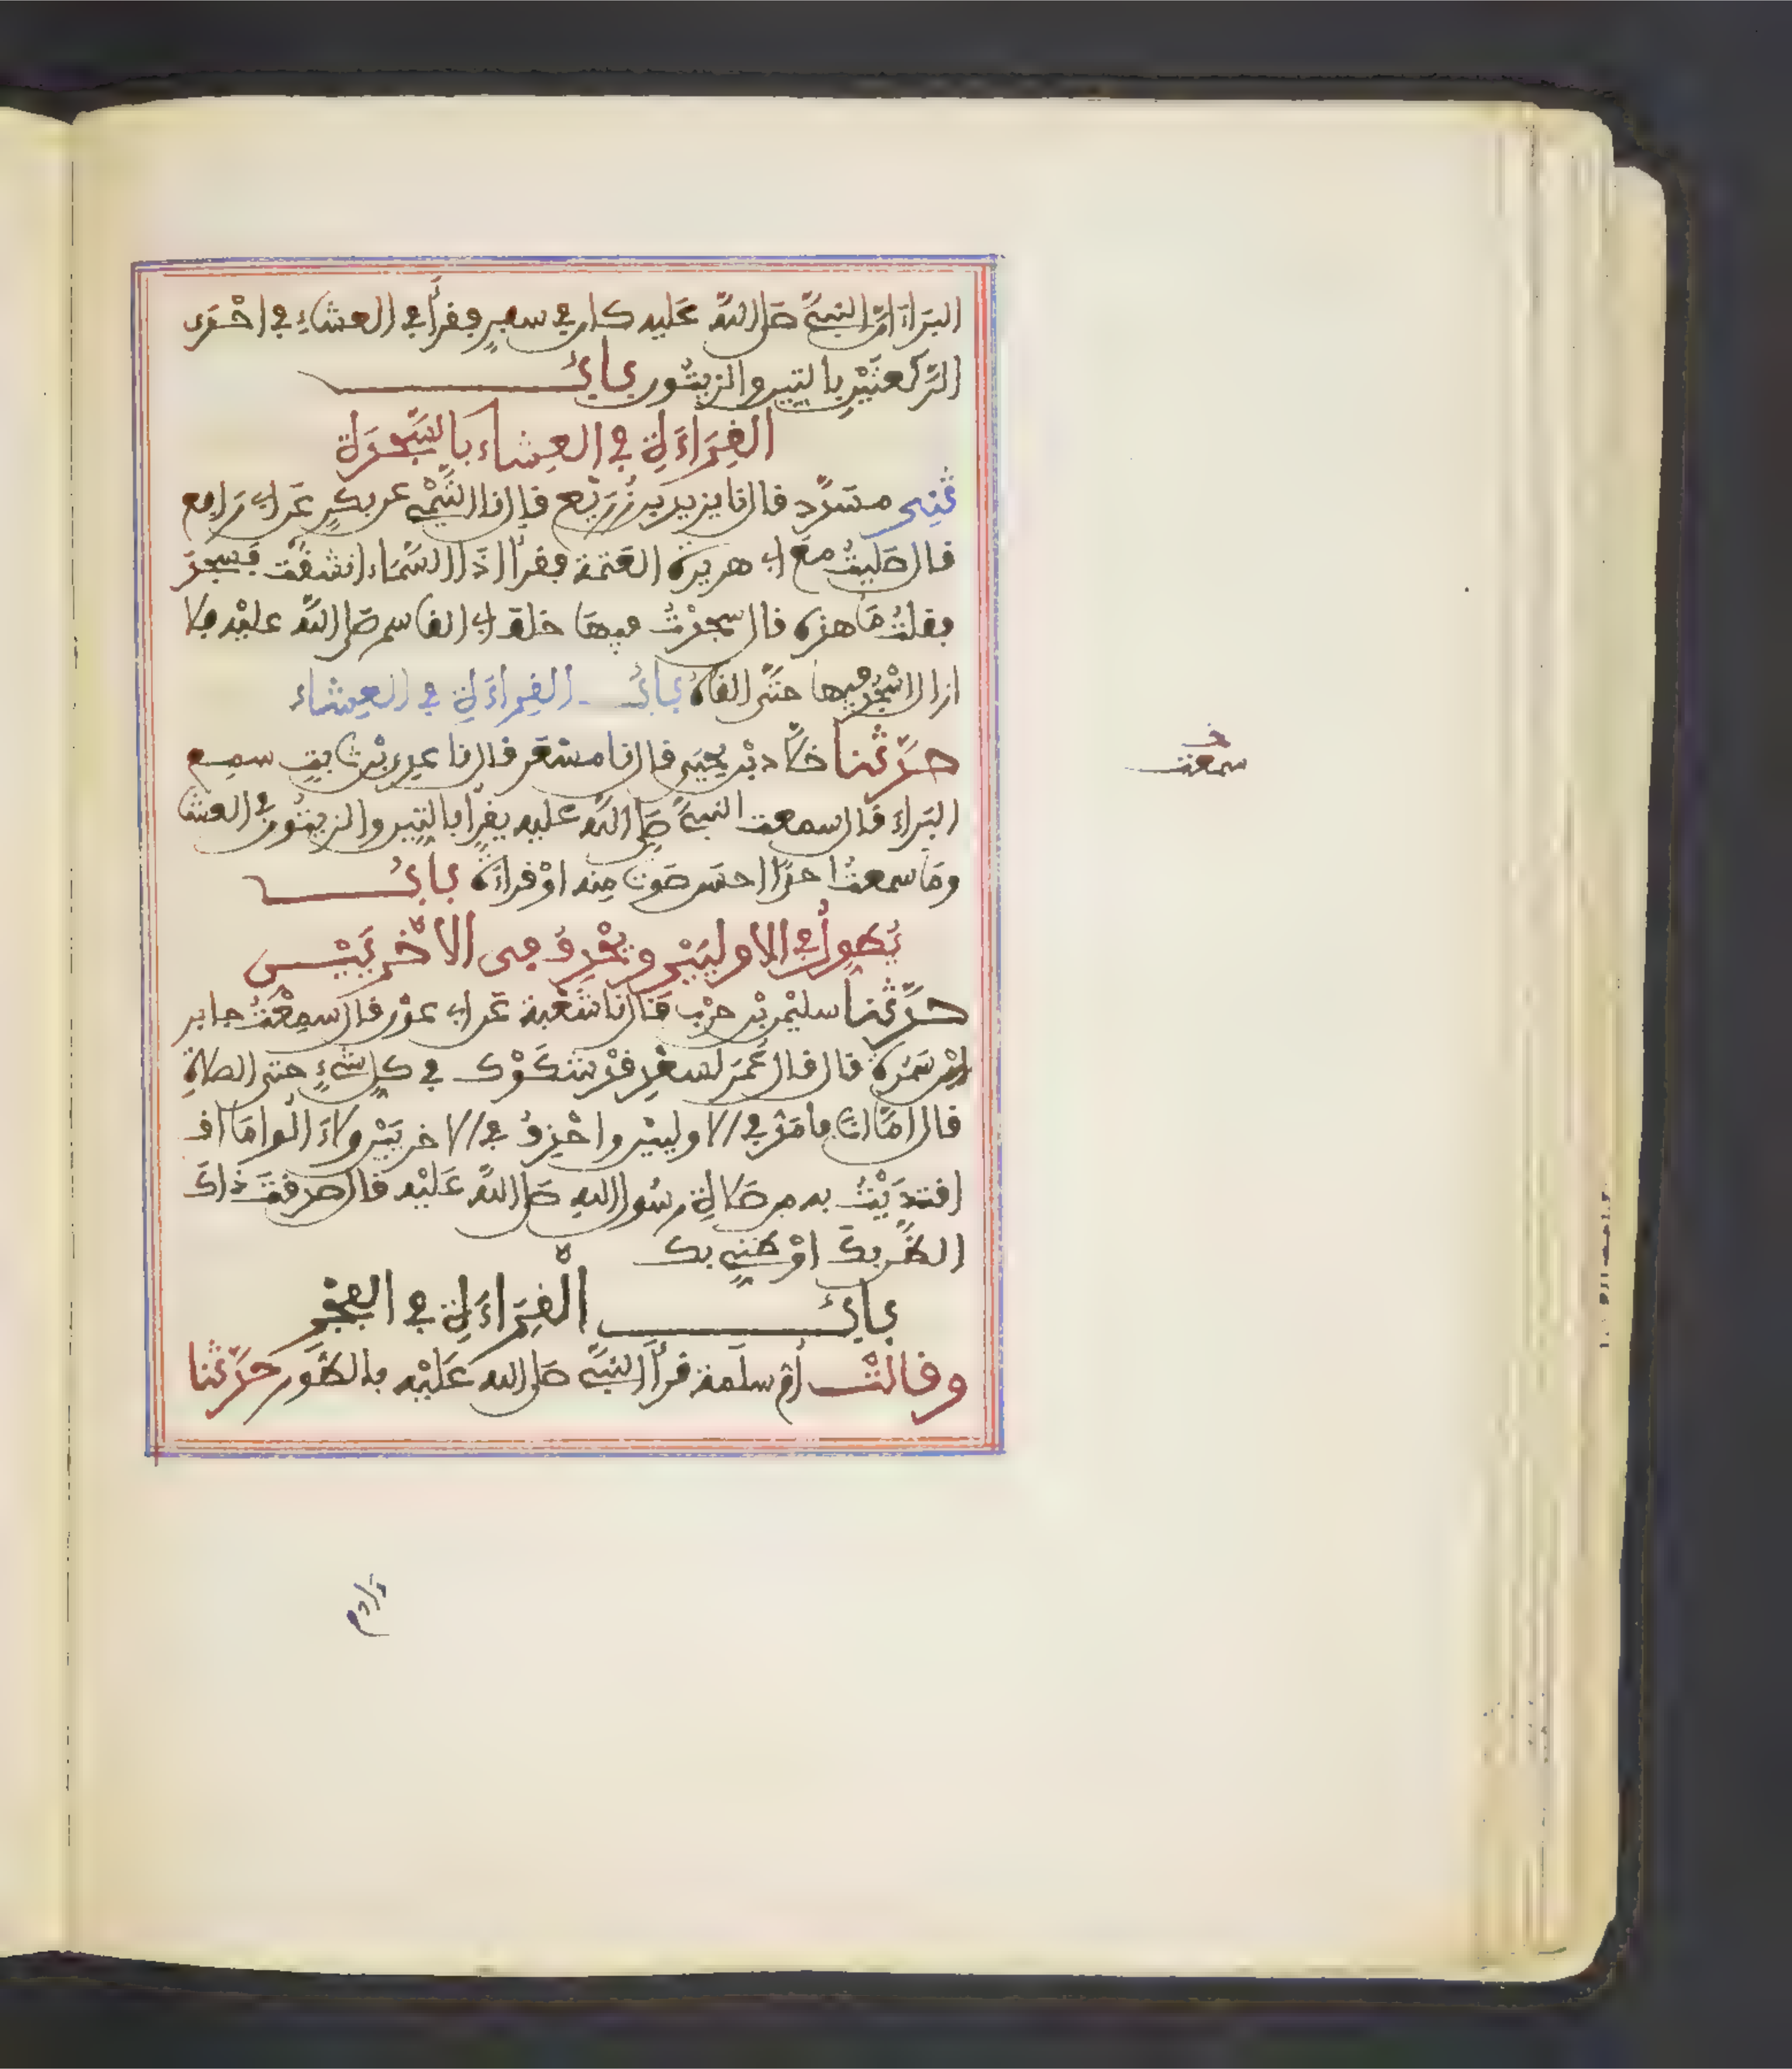 البراء ان النبي صلى الله عليه كان في سفر فقرأ في العشاء في احدى
الركعتين بالتين والزيتون باب
القراءة في العشاء بالسجدة
ثني مسدد قال نا يزيد بن زريع قال نا التيمي عن بكر عن ابي رافع
قال صليت مع ابي هريرة العتمة فقرأ اذا السماء انشقت فسجد
فقلت ما هذه قال سجدت فيها خلف ابي القاسم صلى الله عليه فلا
ازال اسجد فيها حتى القاه باب القراءة في العشاء
حدثنا خلاد بن يحيى قال نا مسعر قال نا عدي بن ثابت سمع
البراء قال سمعت النبي صلى الله عليه يقرأ بالتين والزيتون في العشا
وما سمعت احدا احسن صوتا منه او قراءة باب
يطول في الاوليين ويحذف في الاخريين
حدثنا سليمن بن حرب قال نا شعبة عن ابي عون قال سمعت جابر
ابن سمرة قال قال عمر لسعد قد شكوك في كل شيء حتى الصلاة
قال اما انا فامد في الاوليين واحذف في الاخريين ولا ءالوا ما
اقتديت به من صلاة رسول الله صلى الله عليه قال صدقت ذاك
الظن بك او ظني بك
باب القراءة في الفجر
وقالت ام سلمة قرأ النبي صلى الله عليه بالطور حدثنا
سمعت
ءادم